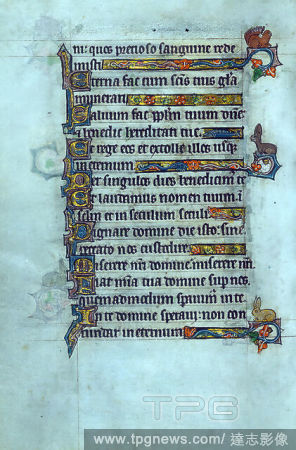 ni: ques precioso sanguine rede
misti
Eterna fac cum scis tuis gla
numerari
Saluum fac pplm tuum dne
a benedic hereditati tue
Et rege eos et extolle illos usq
in eternum
Per singulos dies benedicim te
Et laudamus nomen tuum: i
sclm et in seculum seculi
Dignare domine die isto: sine
peccato nos custodire
Miserere nri domine miserere nri
Fiat mia tua domine sup nos
quemadmodum sperauim in te
In te domine speraui: non con
fundar in eternum
TPG
www.tpgnews.com / 達志影像